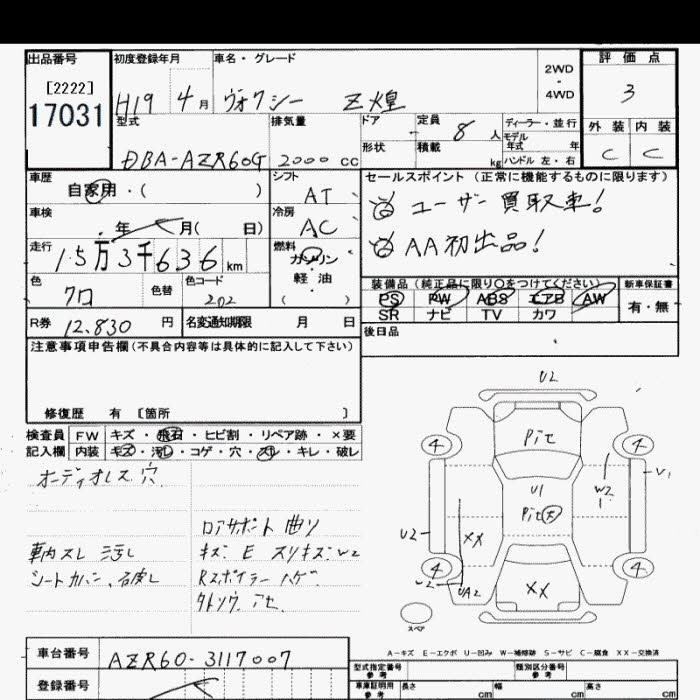 出品番号 初度登録年月 車名・グレード 2WD・4WD 評価点
[2222]
17031 H19 4月 ヴォクシー Z煌 3
型式 排気量 ドア 定員 8人 ディーラー・並行 外装 内装
形状 積載 kg モデル年式 年 C C
DBA-AZR60G 2000cc ハンドル 左・右
車歴 シフト セールスポイント (正常に機能するものに限ります)
自家用・( ) AT ユーザー買取車!
車検 冷房
年 月( 日) AC AA初出品!
走行 燃料
15万3千636km ガソリン・軽油
色 色替 色コード ( ) 装備品 (純正品に限り○をつけてください) 新車保証書
クロ 202 PS PW ABS エアB AW 有・無
SR ナビ TV カワ
R券 12,830円 名変通知期限 月 日 後日品
注意事項申告欄(不具合内容等は具体的に記入して下さい)
修復歴 有 [箇所 ]
検査員 FW キズ・飛石・ヒビ割・リペア跡・×要
記入欄 内装 キズ・汚レ・コゲ・穴・スレ・キレ・破レ
オーディオレス 穴
ロアサポート 曲リ
車内スレ 汚レ キズ E スリキズ W2
シートカバー Rスポイラー ハゲ
U2
Pitt
4 4
U1 W2 V1
Pit大
U2 XX
4 4
U2 UA2 XX
スペア
A-キズ E-エクボ U-凹み W-補修跡 S-サビ C-腐食 XX-交換済
車台番号 AZR60-3117007
型式指定番号 参考 類別区分番号 参考
登録番号 車庫証明用 参考 長さ cm 幅 cm 高さ cm